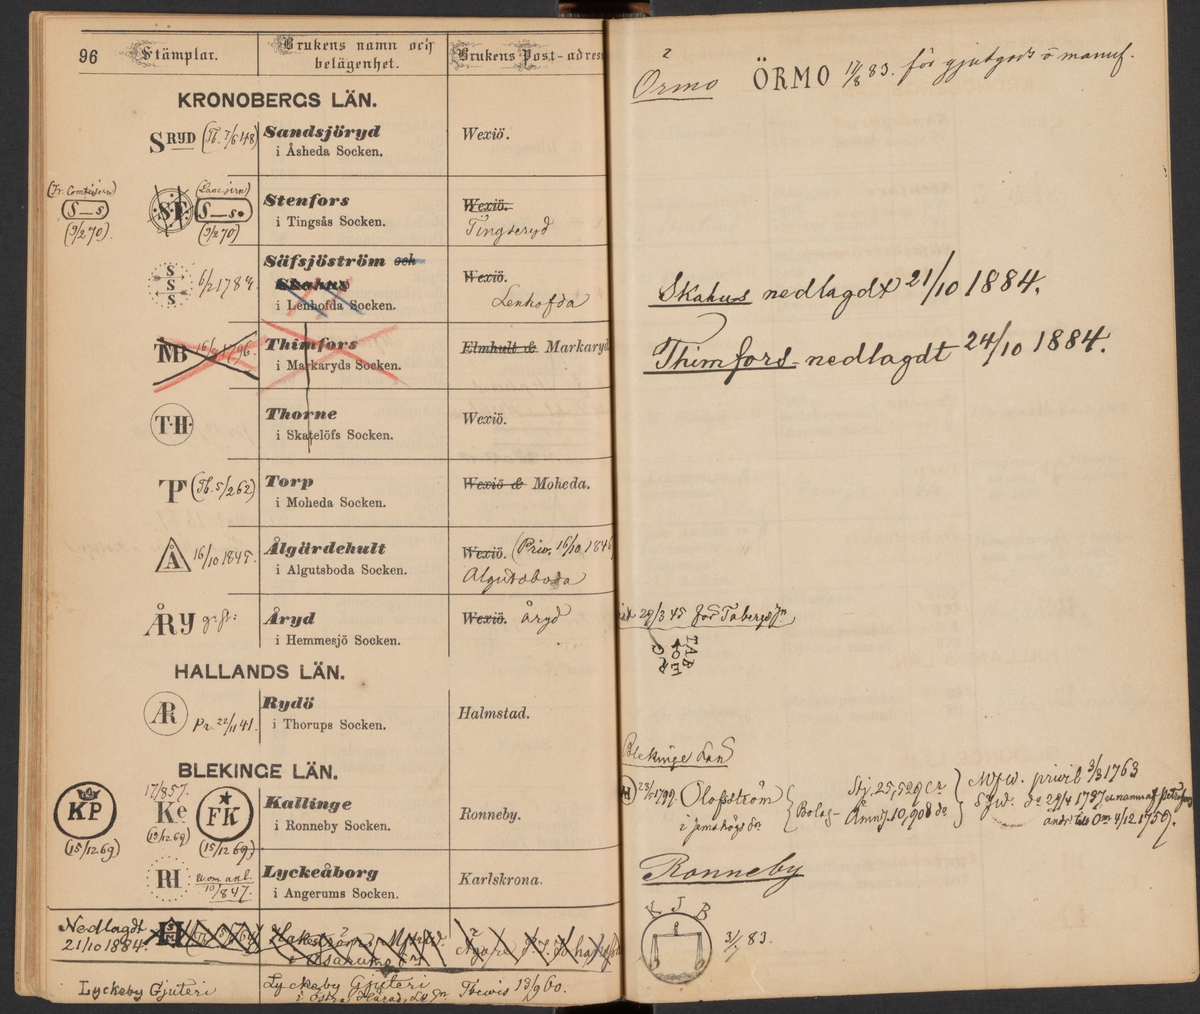 96 Stämplar. Brukens namn och belägenhet. Brukens Post-adress
KRONOBERGS LÄN.
SRYD (Tb. 7/6 48) Sandsjöryd Wexiö.
i Åsheda Socken.
S—s (9/2 70) ST S—s (9/2 70) Stenfors Wexiö.
i Tingsås Socken. Tingsryd
S S S 6/2 1784. Säfsjöström och Wexiö.
Skahus
i Lenhofda Socken. Lenhofda
MB 16/9 1796. Thimfors Elmhult & Markaryd
i Markaryds Socken.
T·H· Thorne Wexiö.
i Skatelöfs Socken.
TP (Tb. 5/2 62) Torp Wexiö & Moheda.
i Moheda Socken.
Å 16/10 1845. Ålgärdehult Wexiö. (Priv. 16/10 1846
i Algutsboda Socken. Algutsboda
ÅRY Åryd Wexiö. Åryd
i Hemmesjö Socken.
HALLANDS LÄN.
ÆR Pr. 22/11 41. Rydö Halmstad.
i Thorups Socken.
BLEKINGE LÄN.
KP (15/12 69) 17/8 57. Ke (15/12 69) FK (15/12 69) Kallinge Ronneby.
i Ronneby Socken.
RI 10/8 47. Lyckeåborg Karlskrona.
i Angerums Socken.
Nedlagdt
21/10 1884. H
Lyckeby Gjuteri Lyckeby Gjuteri 13/9 60.
i Östra Härad
Örmo ÖRMO 17/8 83. för gjutgods o manuf.
Skahus nedlagdt 21/10 1884.
Thimfors nedlagdt 24/10 1884.
29/3 45 för Tabergs
TAB
Blekinge Län
H 23/1 1799. Olofsström Bolag Stj. 25,529 Ctr Ämnj. 10,908 do privil 3/3 1763
i Jemshögs do 29/4 1737
4/12 1750.
Ronneby
K J B
3/7 83.